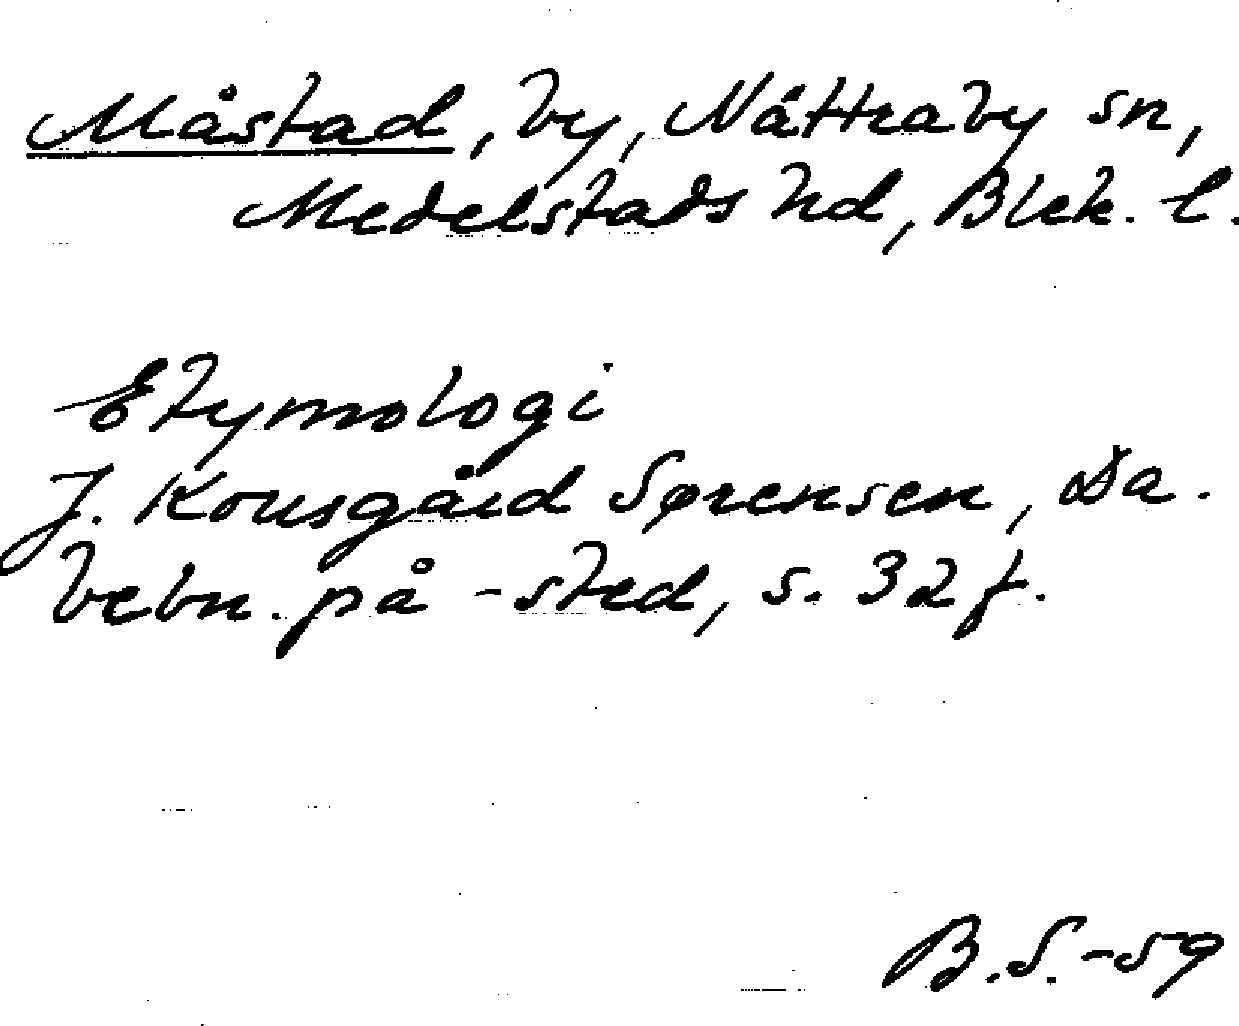 Måstad, by, Nättraby sn,
Medelstads hd, Blek. l.
Etymologi
J. Kousgård Sørensen, Da.
bebn. på -sted, s. 32 f.
B.S.-59